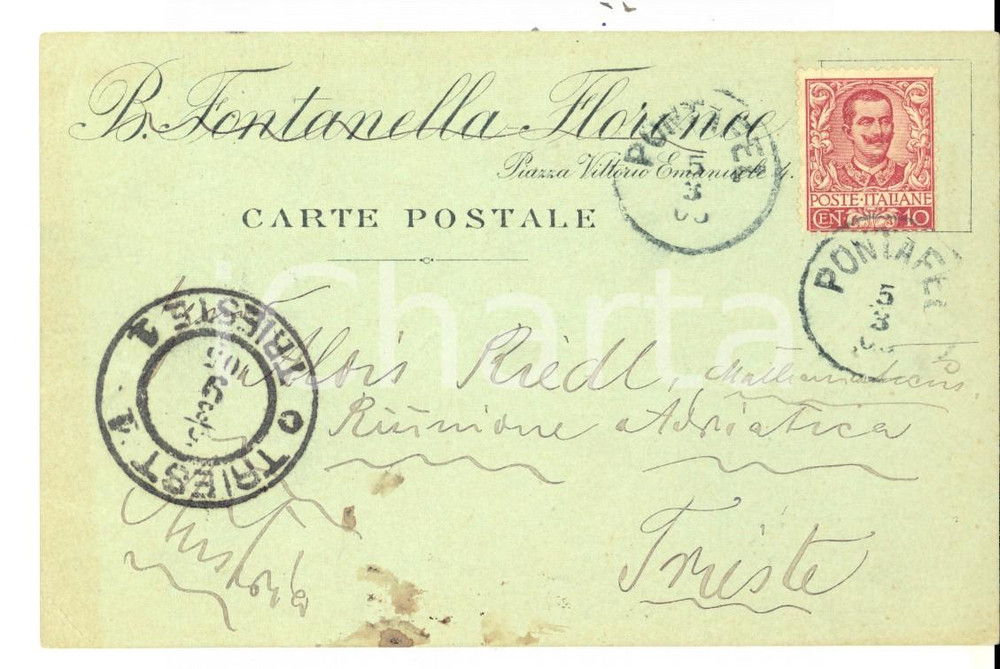 B. Fontanella Florence
Piazza Vittorio Emanuele 4.
CARTE POSTALE
POSTE·ITALIANE
CEN 10
PONTAFEL
5
3
PONTAFEL
5
3
TRIESTE 1
TRIEST 1
iCharta
Alois Riedl, Mathematicus
Riunione Adriatica
Trieste
Austria